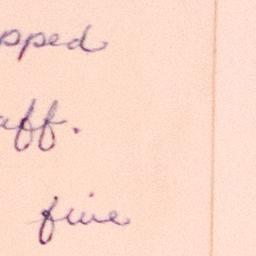 pped
aff.
fine